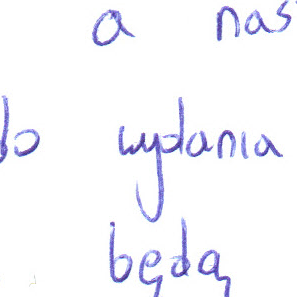 a nas
do wydania
będą